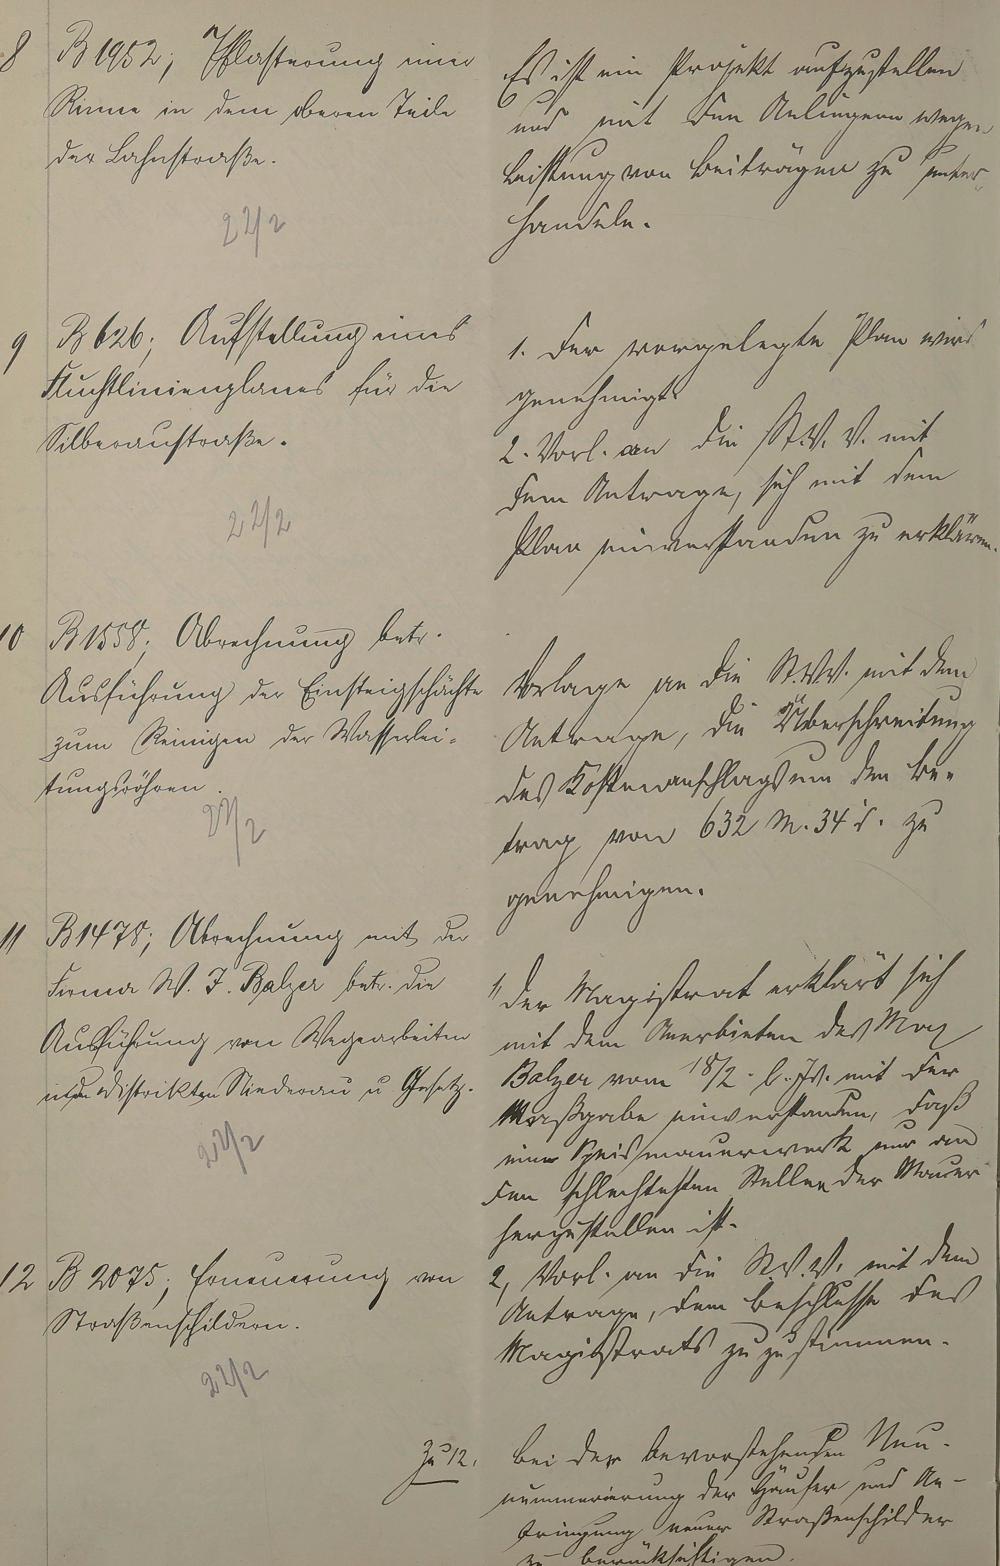 8 B 1952; Pflasterung einer
Rinne in dem oberen Teile
der Bahnstraße.
22/2
Es ist ein Projekt aufzustellen
und mit den Anliegern wegen
Leistung von Beiträgen zu unter-
handeln.
9 B 626; Aufstellung eines
Fluchtlinienplanes für die
Silberaustraße.
22/2
1. Der vorgelegte Plan wird
genehmigt
2. Vorl. an die St.V.V. mit
dem Antrage, sich mit dem
Plan einverstanden zu erklären.
10 B 1558; Abrechnung betr.
Ausführung der Einsteigschächte
zum Reinigen der Wasserlei-
tungsröhren.
22/2
Vorlage an die St.V.V. mit dem
Antrage, die Überschreitung
des Kostenanschlags um den Be-
trag von 632 M. 34 d. zu
genehmigen.
11 B 1478; Abrechnung mit der
Firma W. J. Balzer betr. die
Ausführung von Wegearbeiten
in den Distrikten Niederau u Gesetz.
22/2
1, Der Magistrat erklärt sich
mit dem Anerbieten des
Balzer vom 18/2. l. Js. mit der
Maßgabe einverstanden, daß
eine Speismauerwerk nur an
den schlechtesten Stellen der Mauer
herzustellen ist.
2, Vorl. an die St.V.V. mit dem
Antrage, dem Beschlusse des
Magistrats zuzustimmen.
12 B 2075; Erneuerung von
Straßenschildern.
22/2
Zu 12. Bei der bevorstehenden Neu-
nummerierung der Häuser und An-
bringung neuer Straßenschilder
zu berücksichtigen.